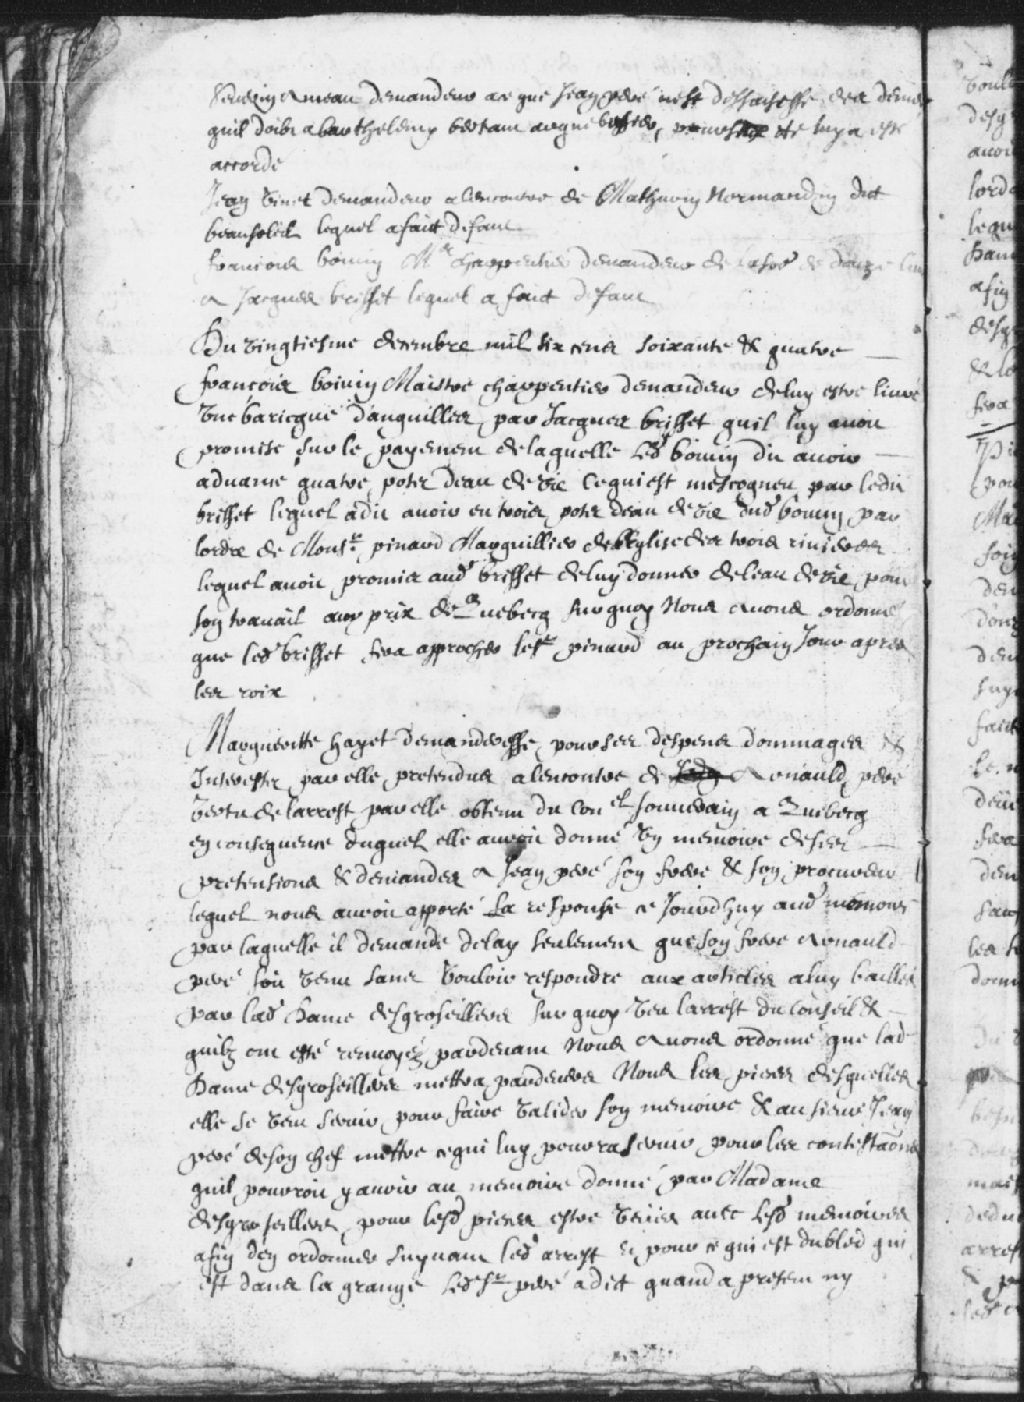 Severin Ameau demandeur a ce que Jean peré nest dessaisisse des deniers
quil doibt a barthelemy bertaut arquebusier, ce luy a esté
accordé
Jean binet demandeur a lencontre de Mathurin Normandin dit
beausoleil lequel a fait defaut
francois boivin Mre charpentier demandeur de la somme de douze
a Jacques brisset lequel a fait defaut
Du vingtiesme decembre mil six cens soixante & quatre
francois boivin Maistre charpentier demandeur de luy estre livré
une baricque danguilles par Jacques brisset quil luy avoit
promise sur le payement de laquelle led boivin dit avoir
advancé quatre potez deau de vie ce qui est mescogneu par ledit
brisset lequel a dit avoir eu trois potez deau de vie dud boivin par
lordre de Monsr pinard Marguillier de leglise des trois rivieres
lequel avoit promis aud brisset de luy donner de leau de vie pour
son travail au prix de Quebecq surquoy Nous avons ordonné
que led brisset fera approcher le sr pinard au prochain Jour apres
les roix
Marguerite hayet demanderesse pour ses despens dommages &
Interestz par elle pretendus a lencontre de arnauld peré
vertu de larrest par elle obtenu du conel souverain a Quebecq
en consequence duquel elle auroit donné un memoire de ses
pretensions & demandes a Jean peré son frere & son procureur
lequel nous auroit apporté La response ce Jourdhuy aud memoire
par laquelle il demande delay seulement que son frere arnauld
peré soit venu sans vouloir respondre aux articles a luy baillés
par lad Dame desgroseilliers surquoy veu larrest du Conseil &
quilz ont esté renvoyéz pardevant Nous avons ordonné que lad
Dame desgroseilliers mettra pardevers Nous les pieces desquelles
elle se veut servir pour faire valider son memoire & au sieur Jean
peré de son chef mettre ce qui luy pourra servir pour les contestaons
quil pourroit y avoir au memoire donné par Madame
desgroseilliers, pour lesd pieces estre veües avec lesd memoires
afin den ordonner suyvant led arrest Et pour ce qui est du bled qui
est dans la grange led sr peré a dit quand a present ny